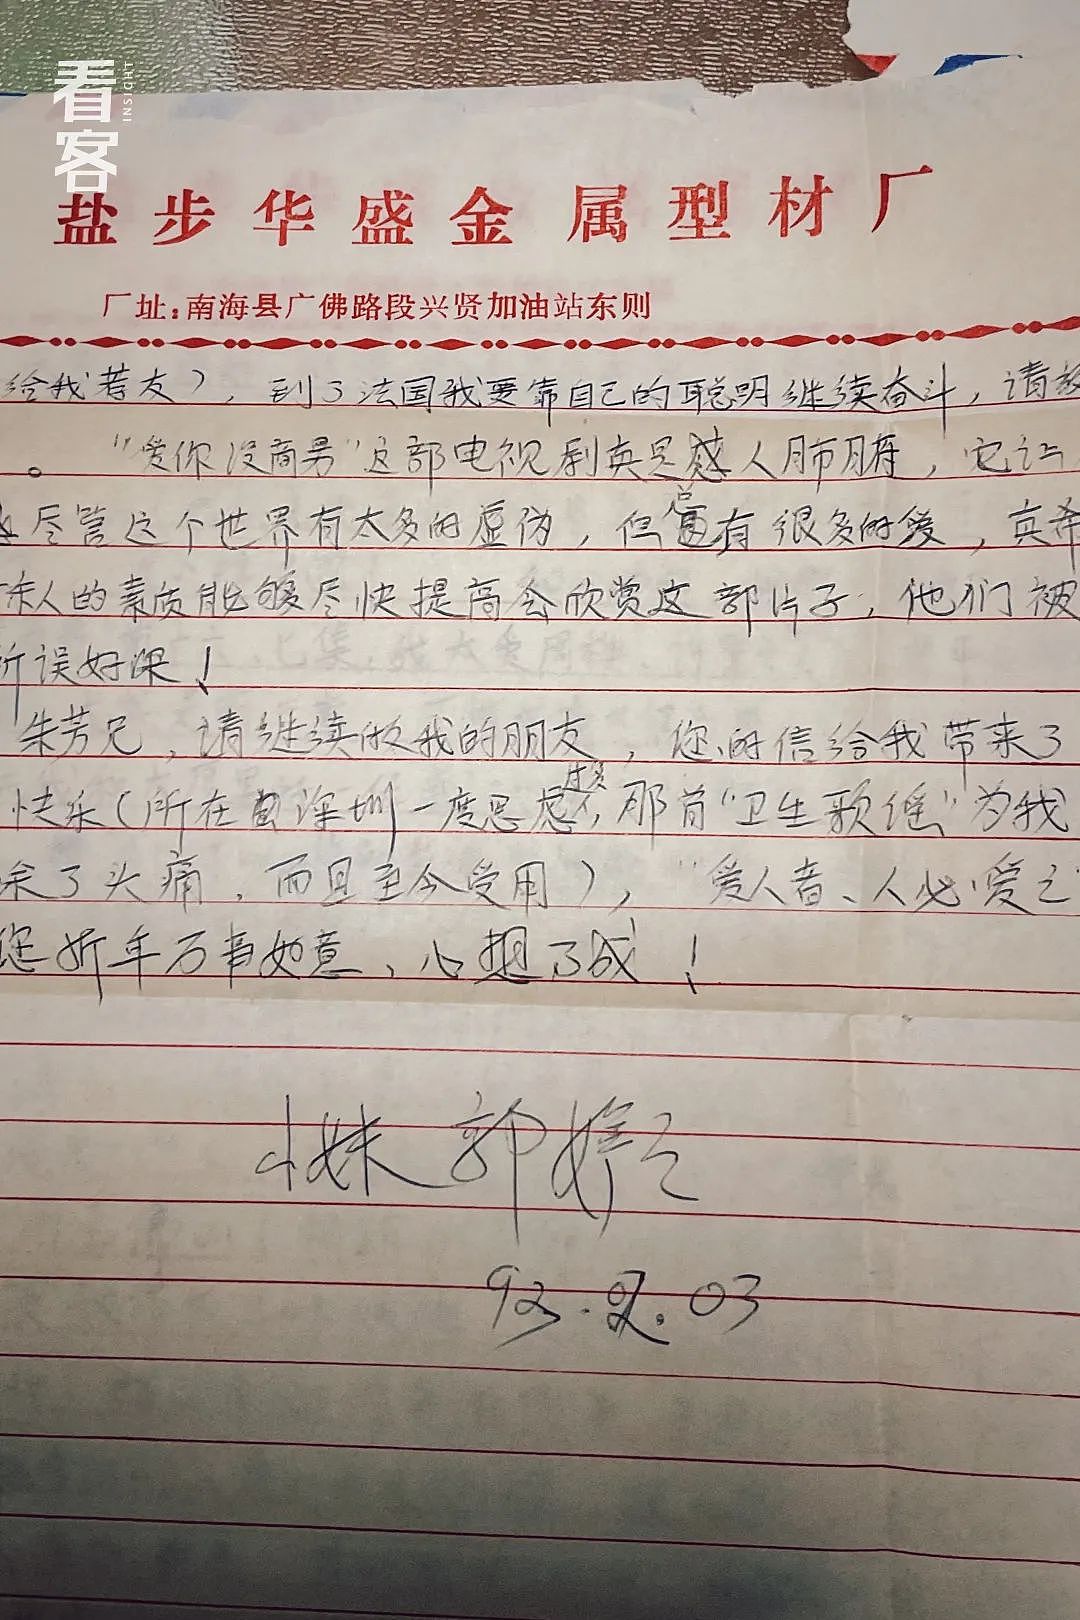 看客
INSIGHT
盐步华盛金属型材厂
厂址:南海县广佛路段兴贤加油站东则
给我若友),到了法国我要靠自己的聪明继续奋斗,请放
。 “爱你没商男”这部电视剧英是感人肺腑,它让
尽管这个世界有太多的虚伪,但总还有很多的爱,真希
人的素质能够尽快提高会欣赏这部片子,他们被
所误好深!
朱芳兄,请继续做我的朋友,您的信给我带来了
快乐(所在深圳一度思虑过多,那首“卫生歌谣”为我
除了头痛,而且至今受用),“爱人者、人必爱之”
您新年万事如意,心想了成!
小妹 郭婷之
92. 2. 03